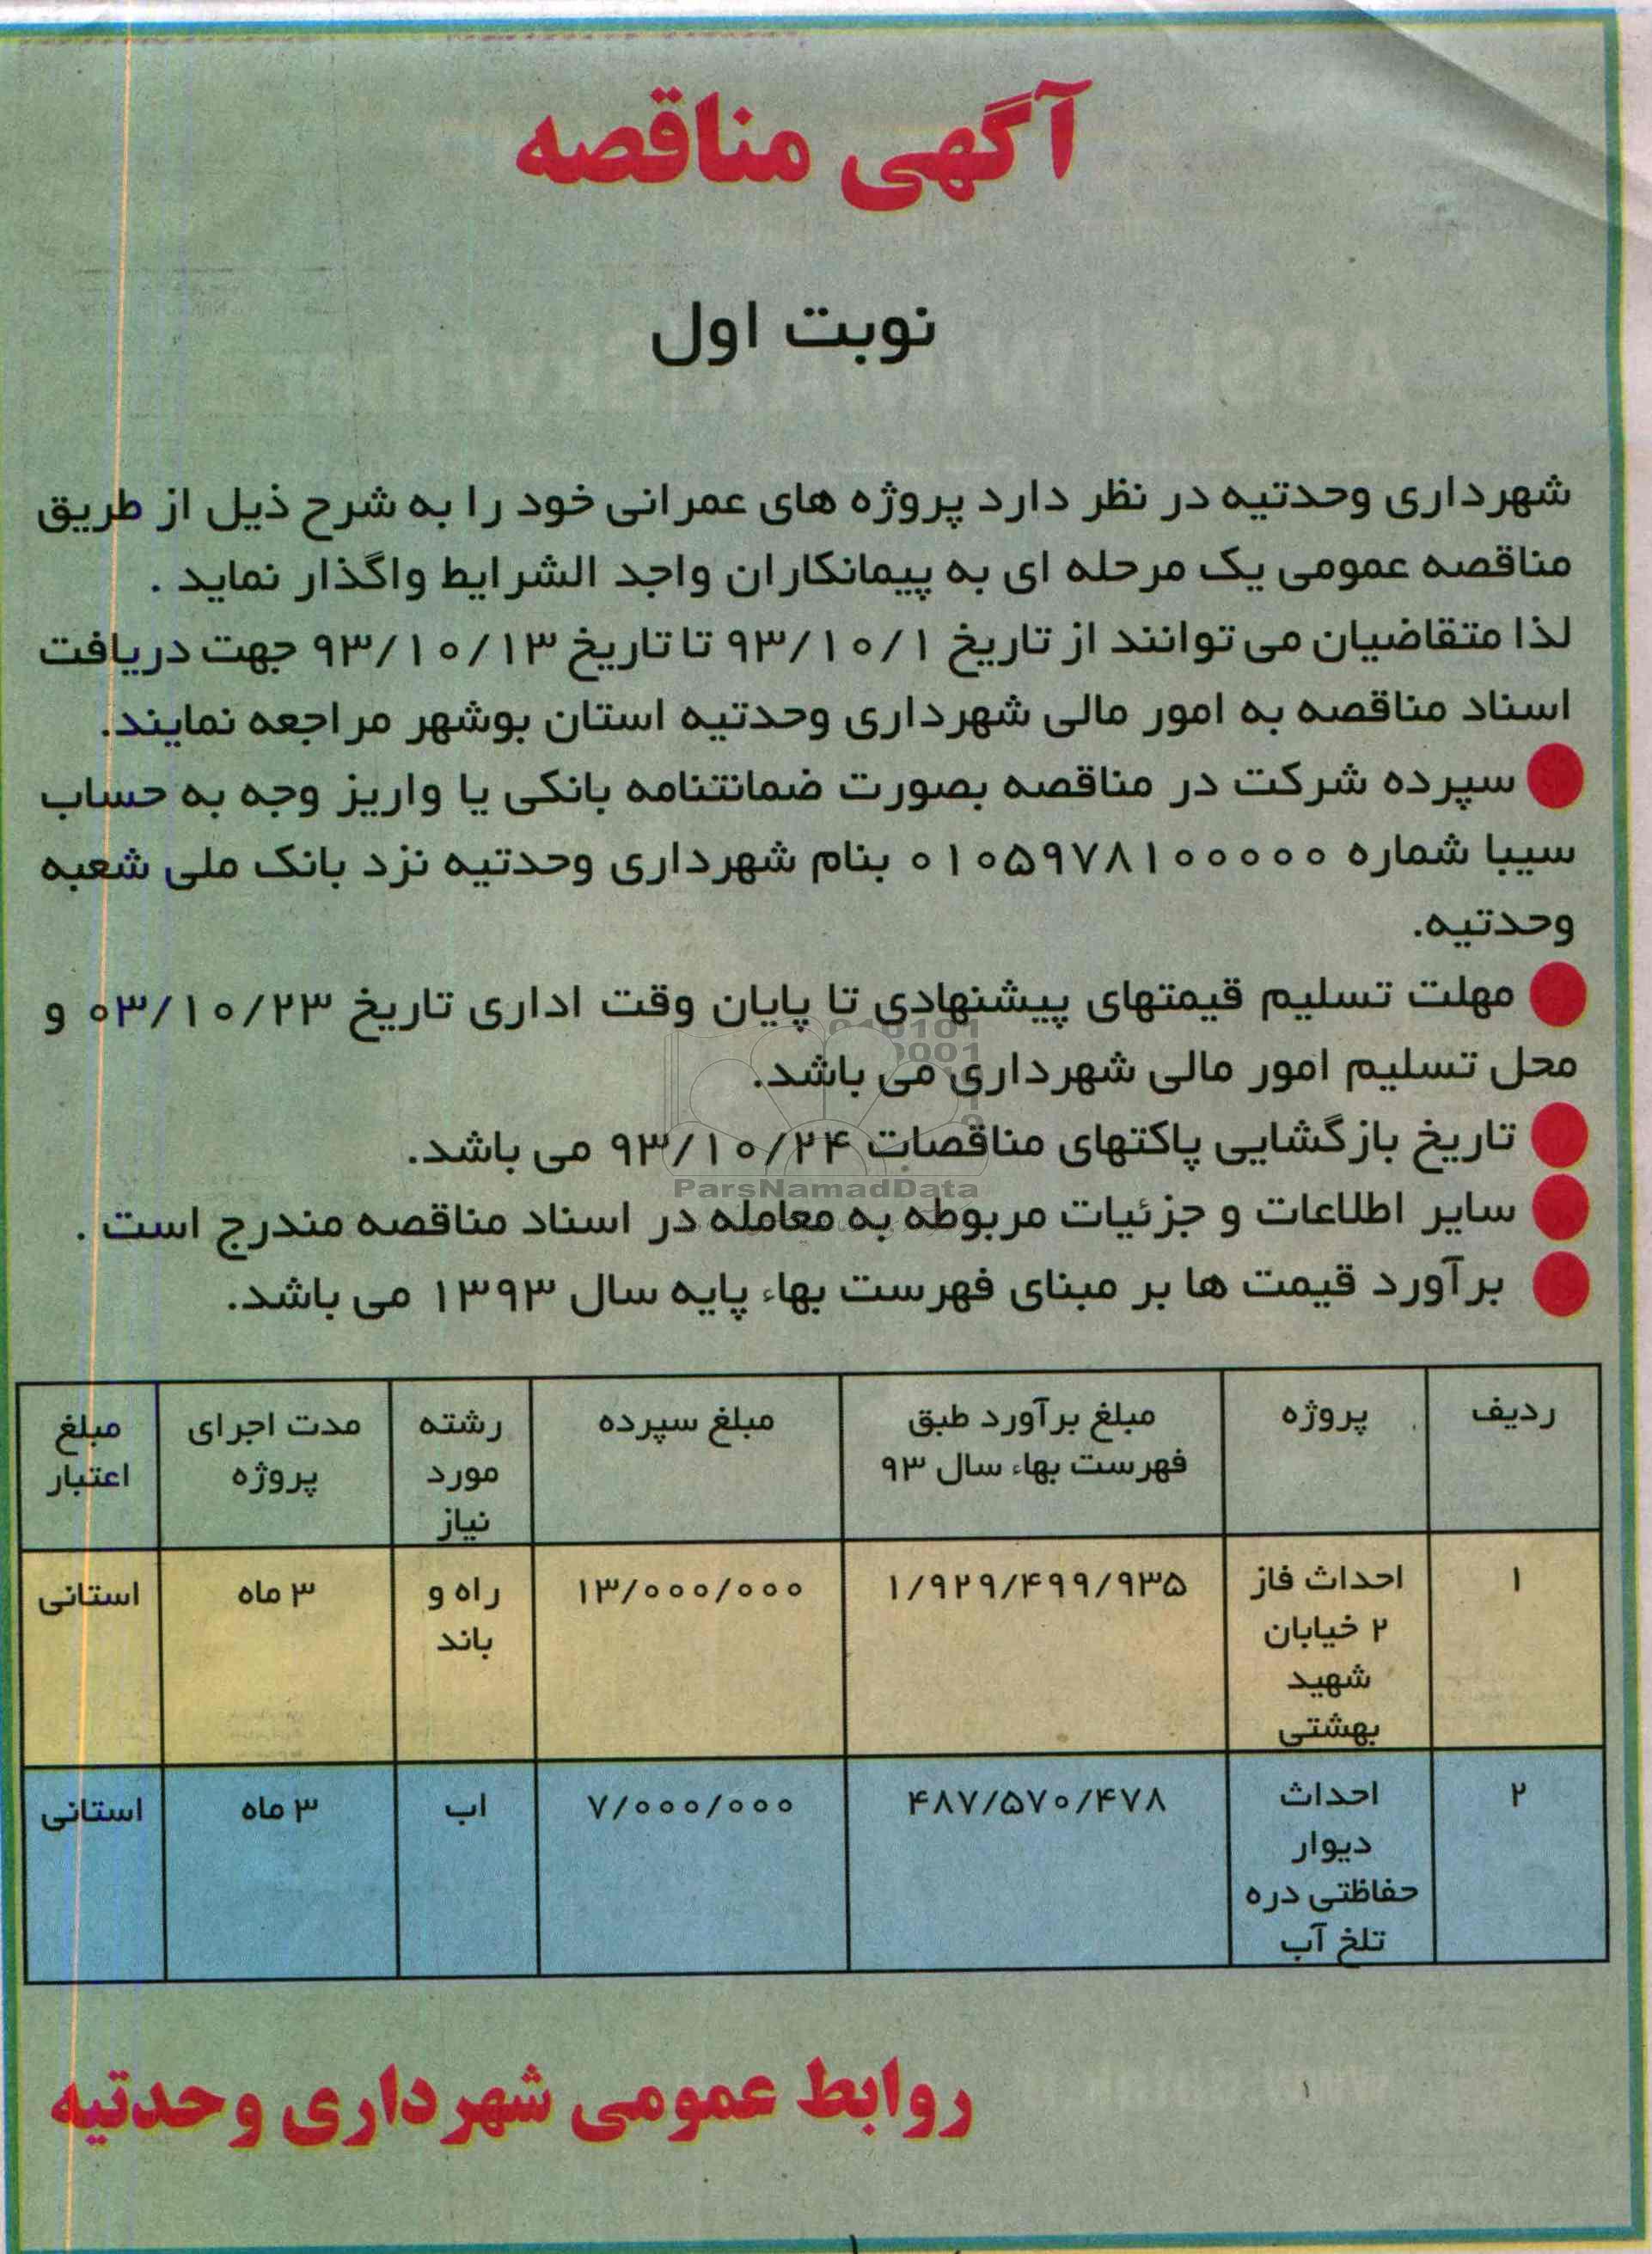 آگهی مناقصه
نوبت اول
شهرداری وحدتیه در نظر دارد پروژه های عمرانی خود را به شرح ذیل از طریق
مناقصه عمومی یک مرحله ای به پیمانکاران واجد الشرایط واگذار نماید .
لذا متقاضیان می توانند از تاریخ ۹۳/۱۰/۱ تا تاریخ ۹۳/۱۰/۱۳ جهت دریافت
اسناد مناقصه به امور مالی شهرداری وحدتیه استان بوشهر مراجعه نمایند.
سپرده شرکت در مناقصه بصورت ضمانتنامه بانکی یا واریز وجه به حساب
سیبا شماره ۰۱۰۵۹۷۸۱۰۰۰۰۰ بنام شهرداری وحدتیه نزد بانک ملی شعبه
وحدتیه.
مهلت تسلیم قیمتهای پیشنهادی تا پایان وقت اداری تاریخ ۰۳/۱۰/۲۳ و
محل تسلیم امور مالی شهرداری می باشد.
تاریخ بازگشایی پاکتهای مناقصات ۹۳/۱۰/۲۴ می باشد.
ParsNamadData
سایر اطلاعات و جزئیات مربوطه به معامله در اسناد مناقصه مندرج است .
برآورد قیمت ها بر مبنای فهرست بهاء پایه سال ۱۳۹۳ می باشد.
ردیف
پروژه
مبلغ برآورد طبق
فهرست بهاء سال ۹۳
مبلغ سپرده
رشته
مورد
نیاز
مدت اجرای
پروژه
مبلغ
اعتبار
۱
احداث فاز
۲ خیابان
شهید
بهشتی
۱/۹۲۹/۴۹۹/۹۳۵
۱۳/۰۰۰/۰۰۰
راه و
باند
۳ ماه
استانی
۲
احداث
دیوار
حفاظتی دره
تلخ آب
۴۸۷/۵۷۰/۴۷۸
۷/۰۰۰/۰۰۰
اب
۳ ماه
استانی
روابط عمومی شهرداری وحدتیه